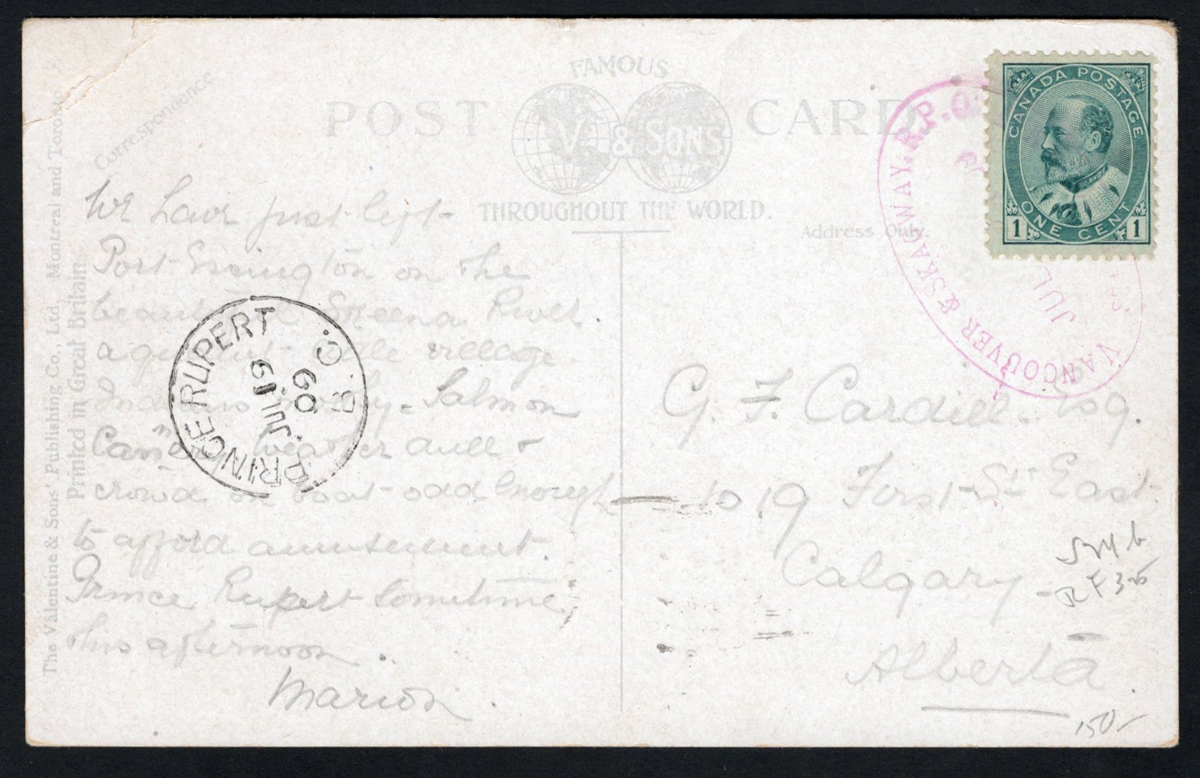 FAMOUS
POST CARD
V. & SONS
THROUGHOUT THE WORLD.
Correspondence
Address Only.
The Valentine & Sons' Publishing Co., Ltd., Montreal and Toronto
Printed in Great Britain.
We have just left
Port Essington on the
Skeena River.
a little village.
Indians Salmon
weather dull &
crowd on boat odd enough
to afford amusement.
Prince Rupert sometime
this afternoon.
Marion.
PRINCE RUPERT B.C.
JUL 19
09
CANADA POSTAGE
1 ONE CENT 1
VANCOUVER & SKAGWAY, R.P.O.
JUL
G. F. Esq.
1019 First St East
Calgary
Alberta.
150-